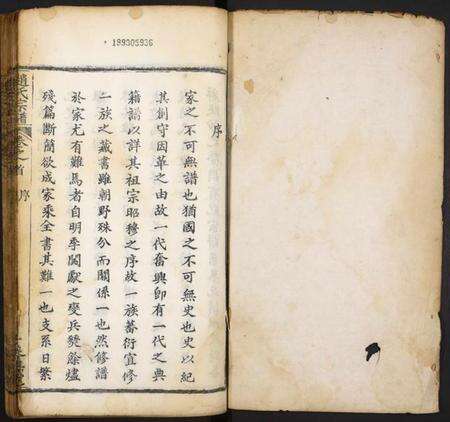 199305936
序
家之不可無譜也猶國之不可無史也史以紀
其創守因革之由故一代奮興卽有一代之典
籍譜以詳其祖宗昭穆之序故一族蕃衍宜修
一族之藏書雖朝野殊分而關係一也然修譜
於家尤有難焉者自明季闖獻之變兵燹餘燼
殘篇斷簡欲成家乘全書其難一也支系日繁
趙氏宗譜
卷之首
序